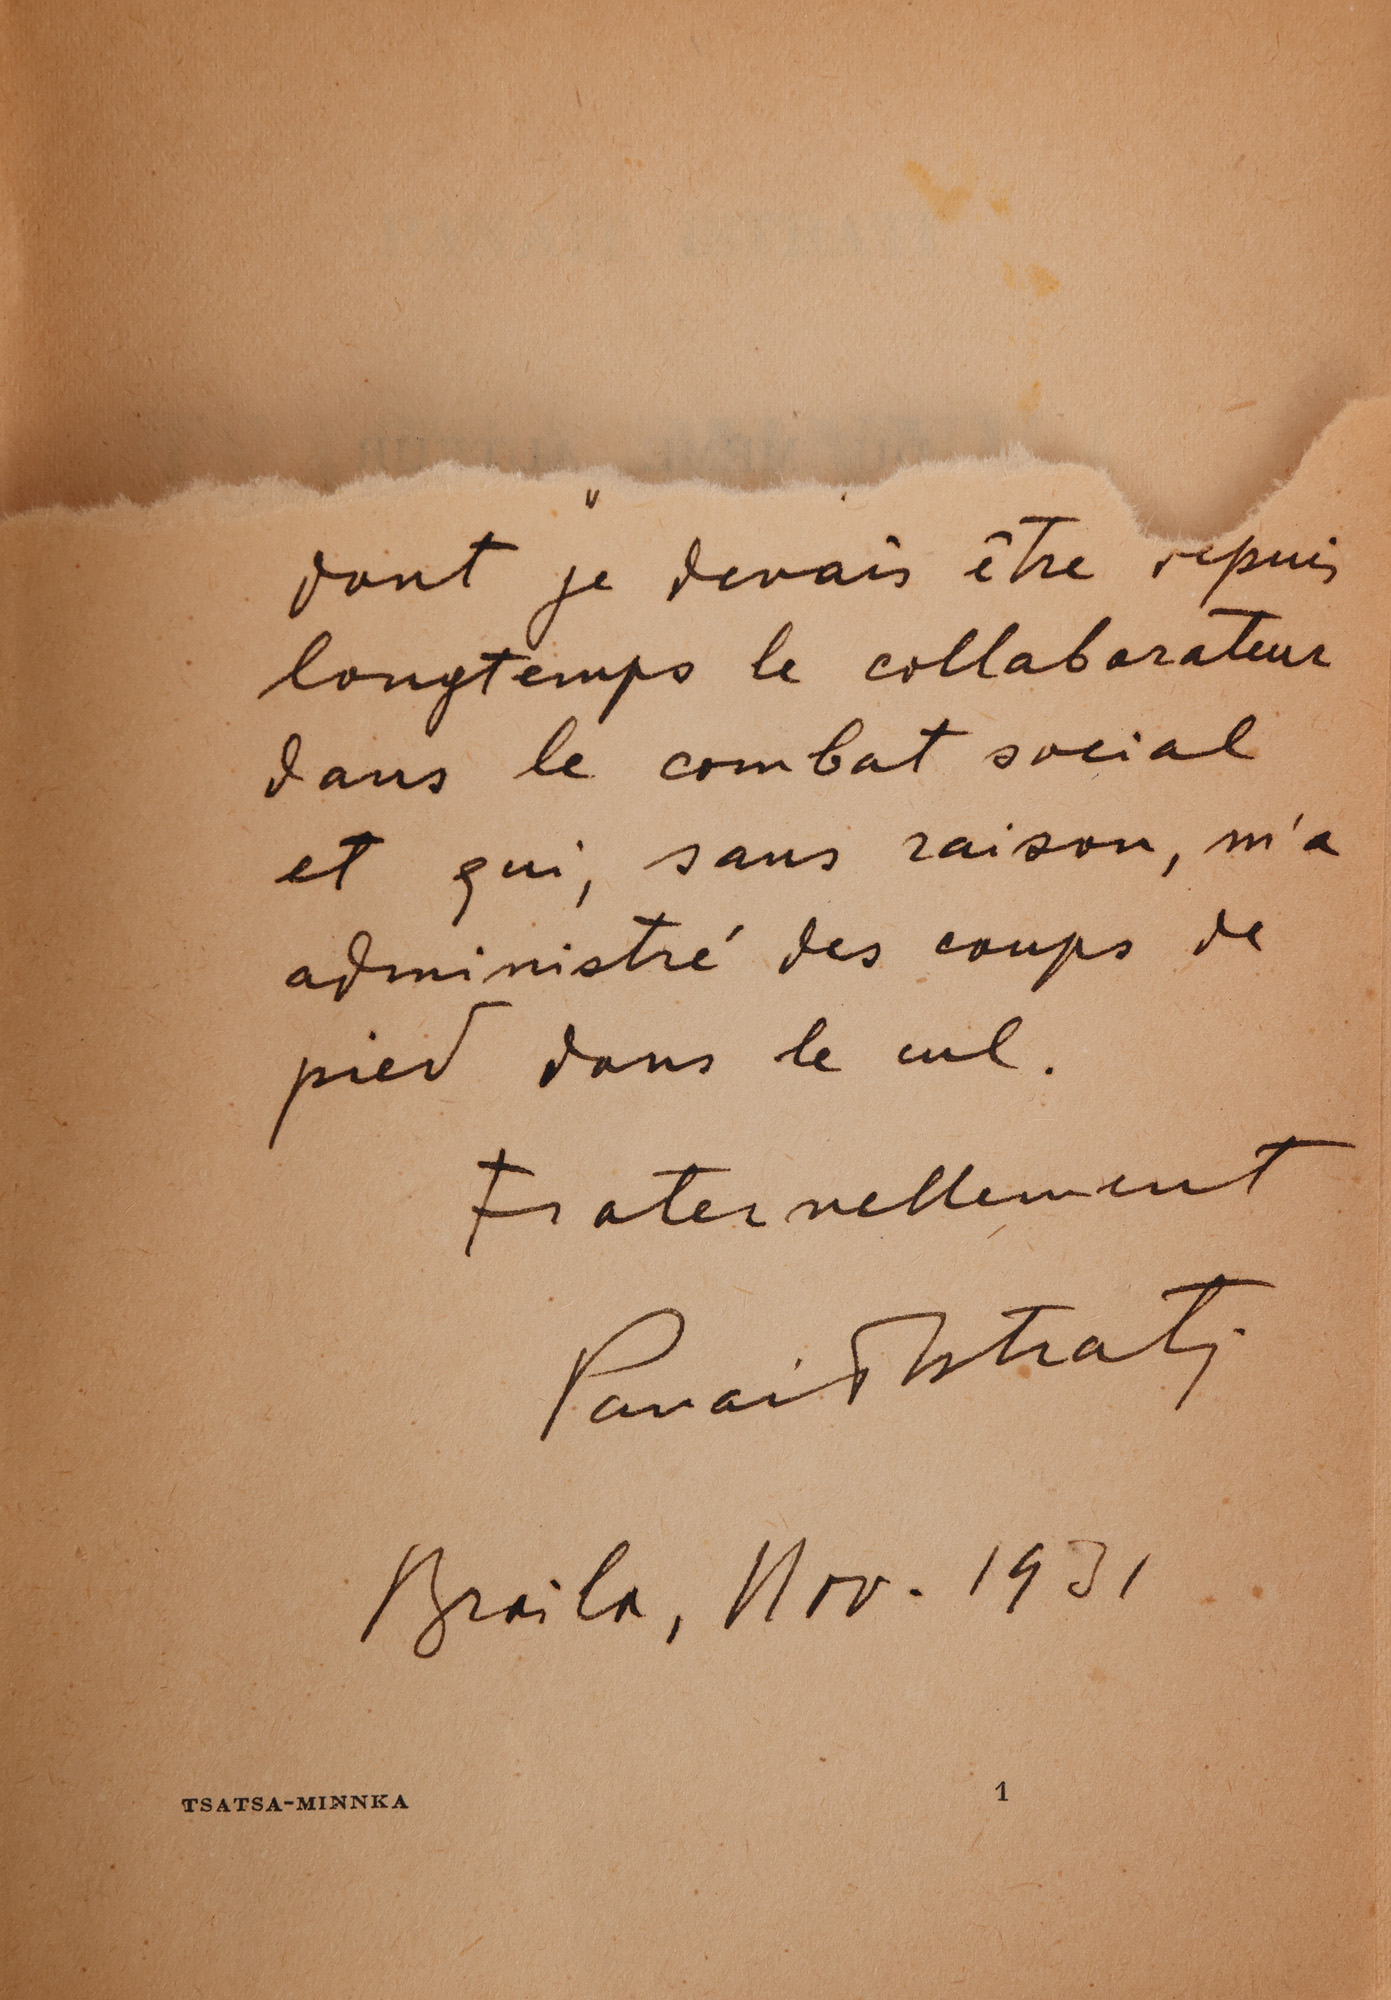 dont je devais être depuis
longtemps le collaborateur
dans le combat social
et qui, sans raison, m'a
administré des coups de
pied dans le cul.
Fraternellement
Panait Istrati
Braila, Nov. 1931
TSATSA-MINNKA 1